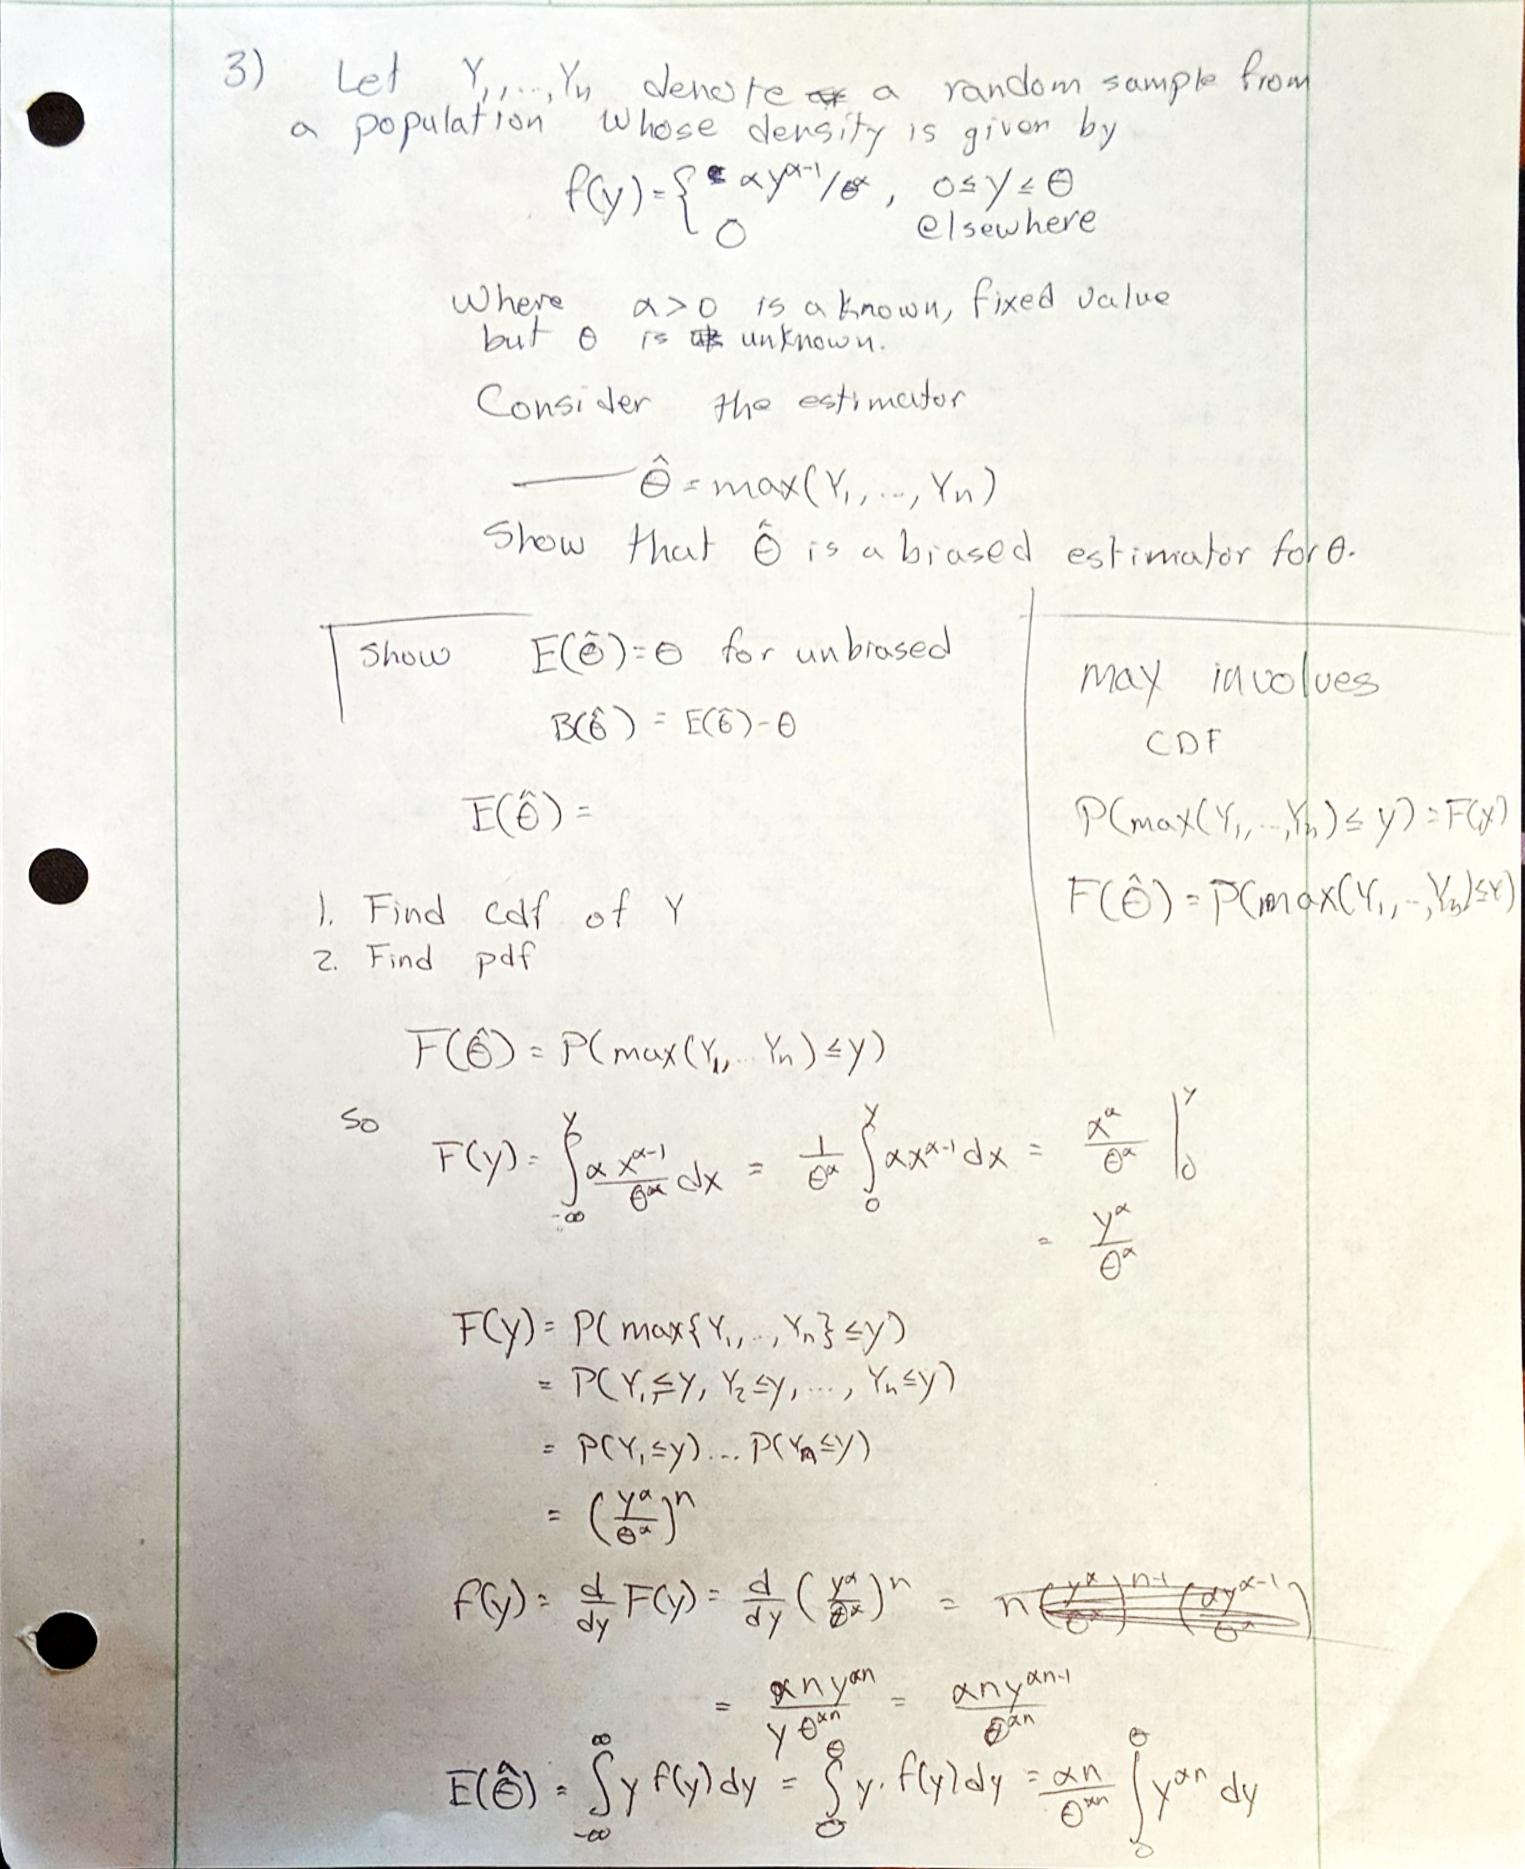 3) Let Y₁,...,Yₙ denote a random sample from
a population whose density is given by
f(y) = { αy^(α-1)/θ^α, 0≤y≤θ
0 elsewhere
Where α>0 is a known, fixed value
but θ is unknown.
Consider the estimator
θ̂ = max(Y₁,...,Yₙ)
Show that θ̂ is a biased estimator for θ.
Show E(θ̂)=θ for unbiased
B(θ̂) = E(θ̂)-θ
E(θ̂) =
may involves
CDF
P(max(Y₁,...,Yₙ)≤y) = F(y)
F(θ̂) = P(max(Y₁,..,Yₙ)≤Y)
1. Find cdf of Y
2. Find pdf
F(θ̂) = P(max(Y₁,...Yₙ)≤y)
So
F(y) = ∫_{-∞}^{y} αx^(α-1)/θ^α dx = 1/θ^α ∫_0^y αx^(α-1) dx = x^α/θ^α |_0^y
= y^α/θ^α
F(y) = P(max{Y₁,..,Yₙ}≤y)
= P(Y₁≤y, Y₂≤y, ..., Yₙ≤y)
= P(Y₁≤y)...P(Yₙ≤y)
= (y^α/θ^α)^n
f(y) = d/dy F(y) = d/dy (y^α/θ^α)^n = n(y^α/θ^α)^(n-1) (αy^(α-1)/θ^α)
= αny^(αn)/(yθ^(αn)) = αny^(αn-1)/θ^(αn)
E(θ̂) = ∫_{-∞}^{∞} y f(y) dy = ∫_0^θ y·f(y) dy = αn/θ^(αn) ∫_0^θ y^(αn) dy